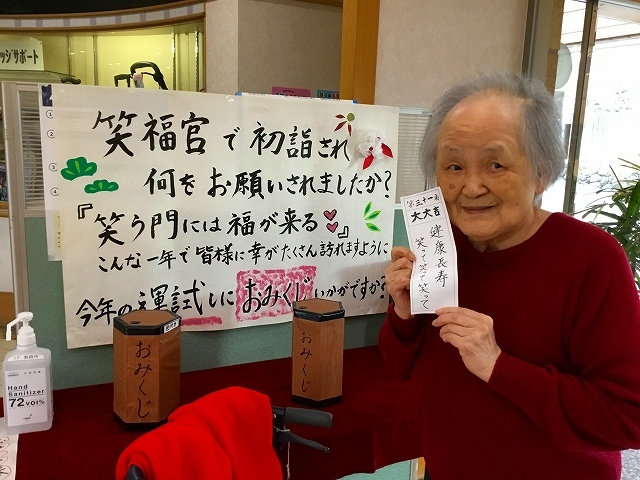 ッジサポート
笑福宮で初詣され
何をお願いされましたか?
『笑う門には福が来る
こんな一年で皆様に幸がたくさん訪れますように
今年の運試しにおみくじいかがですか?
第三十一番
大大吉
健康長寿
笑って笑って笑って
おみくじ
おみくじ
Hand
Sanitizer
72vol%